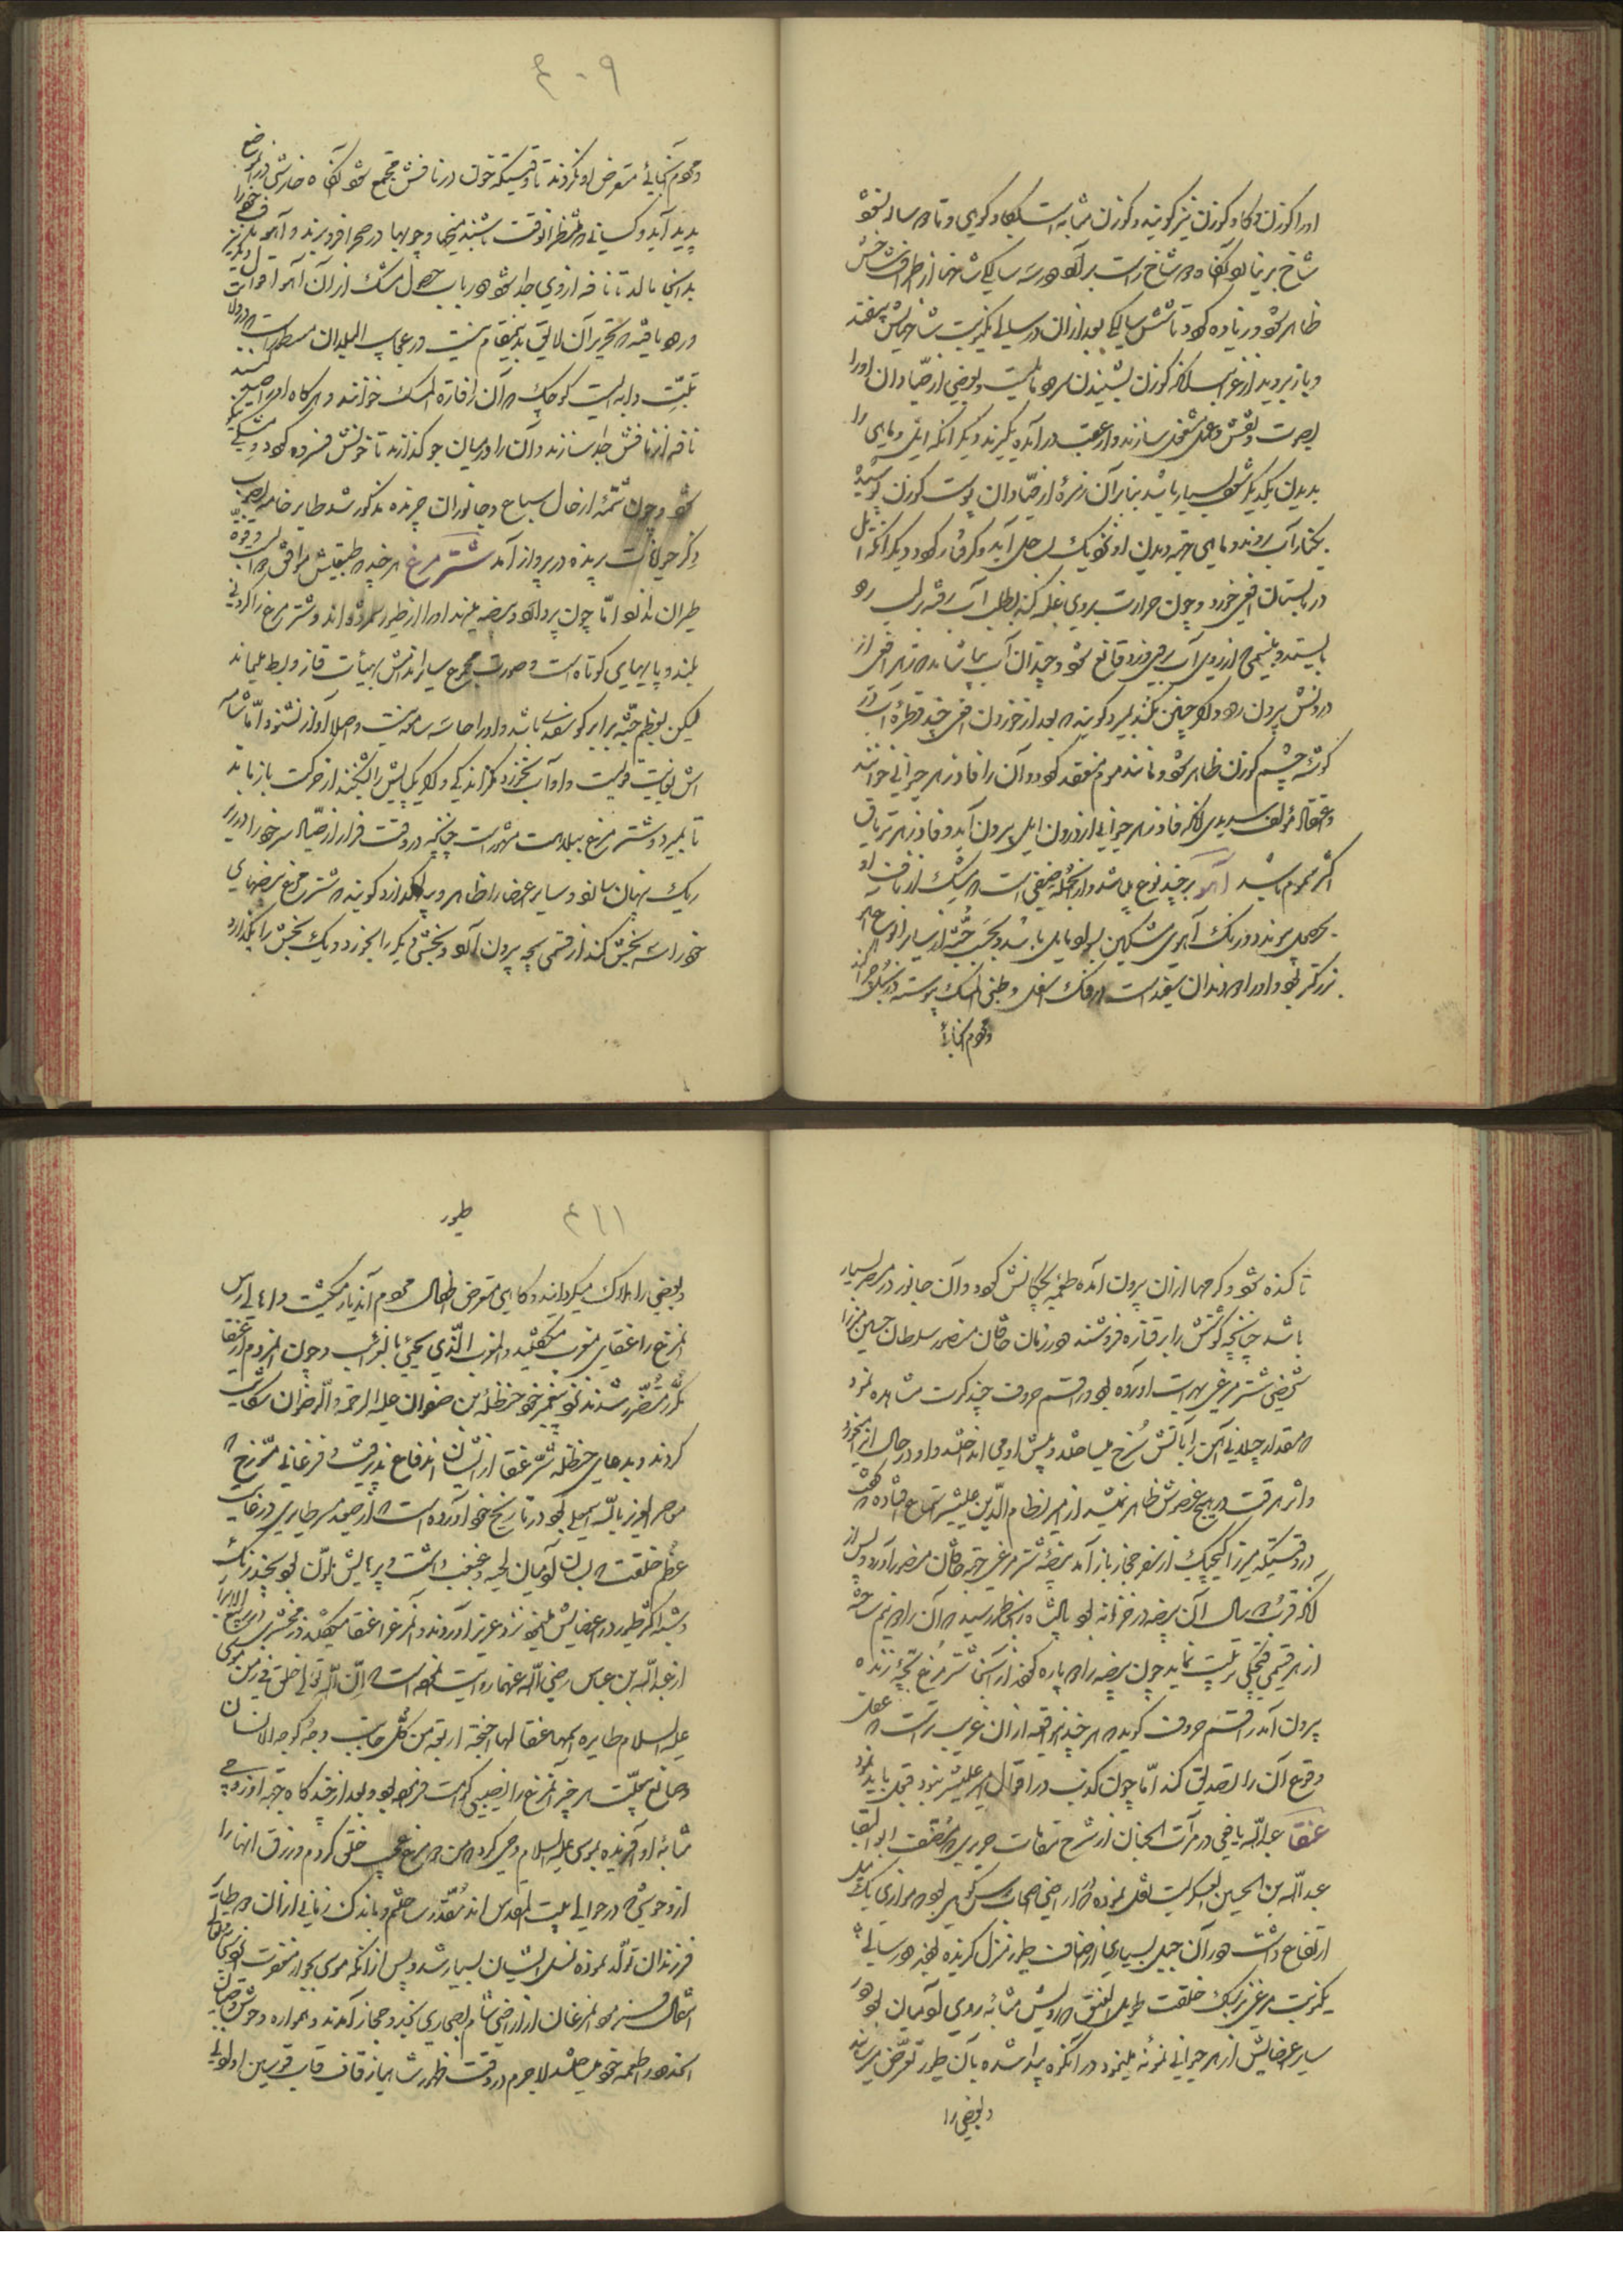 اورا کوزن و کاو کوزن نیز کویند و کوزن مشابه است بکاو کوهی و تا دو ساله نشود
شاخ برنیارد آنکاه دو شاخ راست برآرد و هر سال یک شاخ از اطراف شاخش
ظاهر شود و زیاده کردد تا شش سالکی بعد از آن در سالی یک نوبت شاخهایش بیفتد
و باز بروید
بصورت و نقش و عمل مشغول سازند و از عقب درآمده بگیرند و دیگر آنکه ایل و ماهی را
بدیدن یکدیگر شوق بسیار باشد بنابر آن زمره از صیادان پوست کوزن پوشیده
بکنار آب روند و ماهی جهة دیدن او نزدیک بساحل آید و گرفتار کردد و دیگر آنکه ایل
در تابستان افعی خورد و چون حرارت بر وی غلبه کند بطلب آب رفته بر لب رود
بایستد و بنسیمی که از روی آب برخیزد قانع شود و چندان آب نیاشامد که زهر افعی از
درونش بیرون رود و اگر چنین نکند بمیرد و کویند که بعد از خوردن افعی چند قطره آب از
کوشه چشم کوزن ظاهر شود و مانند موم منعقد کردد و آن را فادزهر حیوانی خوانند
و اعتقاد مؤلف سدیدی آنکه فادزهر حیوانی از درون ایل بیرون آید و فادزهر تریاق
اکثر سموم باشد آهو بر چند نوع میباشد و از آنجمله صنفی است که مشک از نافه او
بحصول پیوندد و رنک آهوی مشکین بسواد مایل باشد و بحسب جثه از سایر انواع آهو
بزرکتر بود و او را دو دندان سفید است در فک اسفل و ظبی المسک پیوسته در بلاد چرا کند
و مردم آنجائی
۴۰۹
و مردم آنجائی متعرض او نکردند تا وقتیکه خون در نافش مجتمع شود آنکاه خارشی در آنموضع
پدید آید و کسانی که منتظر آنوقت باشند میخها و چوبها در صحرا فروبرند و آهو خود را
بدانجا مالد تا نافه از وی جدا شود و در باب حصول مشک از آن آهو اقوال دیگر نیز
ورود یافته که تحریر آن لایق بدینمقام نیست و در عجایب البلدان مسطور است که در ولایت
تبّت دابه ایست کوچک که آن را فارة المسک خوانند و هرکاه او را صید کنند
نافه از نافش جدا سازند و آن را در میان جو کذارند تا خونش فسرده کردد و مشکی نیکو
شود و چون شمّه از حال سباع و جانوران چرنده مذکور شد طایر خامه بصوب
ذکر حیوانات پرنده در پرواز آمد شتر مرغ هر چند که طبیعتش موافق دواب است و قوه
طیران ندارد امّا چون پر دارد و بیضه مینهد او را از طیور شمرده اند و شتر مرغ را کردنی
بلند و پایهای کوتاه است و صورت مجموع سایر اندامش بهیأت قاز و بط میماند
لیکن بعظم جثّه برابر کوسفندی باشد و او را حاسّه سامعه نیست و اصلا آواز نشنود امّا شامه
اش بغایت قویست و او آب نخورد مگر اندکی و اگر یک پایش را بشکنند از حرکت باز ماند
تا بمیرد و شتر مرغ ببلاهت مشهور است چنانچه در وقت فرار از صیّاد سر خود را در زیر
ریک پنهان سازد و سایر اعضا را ظاهر و پیدا گذارد کویند که شتر مرغ بیضهای
خود را سه بخش کند از قسمی بچه بیرون آرد و بخشی دیگر را بخورد و یک بخش را بگذارد
تا کنده شود و کرمها از آن بیرون آمده طعمه بچکانش کردد و آن جانور در مصر بسیار
باشد چنانچه کوشتش را بر قناره فروشند و در زمان خاقان منصور سلطان حسین میرزا
شخصی شتر مرغی بهرات آورده بود و راقم حروف چند کرت مشاهده نمود
که مقدار چهل من آهن را بآتش سُرخ میساختند و پیش او می انداختند و او در حال آنرا میخورد
و اثر حرقت در هیچ عضوش ظاهر نمیشد از میر نظام الدّین علیشیر استماع افتاده که گفت
در وقتیکه میرزا کیچیک از سفر حجاز باز آمد بیضه شتر مرغی جهة خاقان منصور آورد و پس از
آنکه قرب ده سال آن بیضه در خزانه بود پادشاه را بخاطر رسید که آن را دو نیم ساخته
از هر قسمی قنچی ترتیب نماید چون بیضه را دو پاره کردند از آن شتر مرغ بچّۀ زنده
بیرون آمد راقم حروف کوید که هر چند این واقعه از آن غریب تر است که عقل
وقوع آن را تصدیق کند امّا چون کذب در اقوال امیر علیشیر نبود قبول باید نمود
عنقا عبداللّه یافعی در مرآت الجنان از شرح مقامات حریری که مصنّف ابو البقا
عبداللّه بن الحسین العسکریست نقل نموده که در اراضی اصحاب رس کوهی بود که موازی یک میل
ارتفاع داشت و در آن جبل بسیاری از اصناف طیور منزل کزیده بودند و در سالی
یک نوبت مرغی بزرک خلقت طویل العنق که رویش مشابه روی آدمیان بود و در
سایر اعضایش از هر حیوانی نمونه مینمود در آنکوه پیدا شده بآن طیور تعرّض میرسانید
و بعضی را
طیور
۴۱۱
و بعضی را هلاک میکردانید و کاهی متعرض اطفال مردم آن دیار میکشت و اهالی رس
آنمرغ را عنقای مغرب میکفتند و المغرب الّذی یجیئ بالغرائب و چون آنمردم از عنقا
مکرّر متضّرر شدند نزد پیغمبر خود حنظلة بن صفوان علیه الرحمة و الرضوان شکایت
کردند و بدعای حنظله شرّ عنقا از ایشان اندفاع پذیرفت و فرغانی مؤرّخ که
معاصر العزیز باللّه اسمعیلی بود در تاریخ خود آورده است که از صعید مصر طایری در غایت
عظم خلقت که بسان آدمیان لحیه و غبغب داشت و پرهایش ملوّن بود بچند رنک
و شبه اکثر طیور در اعضایش مینمود نزد عزیز آوردند و آنمرغ را عنقا میکفتند و زمخشری در ربیع الابرار
از عبداللّه بن عباس رضی اللّه عنهما روایت نموده است که انّ اللّه تعالی خلق فی زمن موسی
علیه السلام طایرة اسمها عنقا لها اجنحة اربعة من کلّ جانب و وجه کوجه الانسان
و صانع بیچون از هر چیز آنمرغ را نصیبی کرامت فرموده بود و بعد از چند کاه جهة او زوجی
مشابه او آفریده بموسی علیه السلام وحی کرد که من دو مرغ عجیب خلق کردم و رزق آنها را
از وحوشی که در حوالی بیت المقدس اند مُقدّر ساختم و باندک زمانی از آن دو طایر
فرزندان تولّد نموده نسل ایشان بسیار شد و پس از آنکه موسی بجوار مغفرت
انتقال فرمود آنمرغان از اراضی شام بصحاری نجد و حجاز آمدند و همواره وحوش و صبیان
آنحدود را طعمه خود میساختند لاجرم در وقت ظهور شاهباز قاف قاب قوسین او ادنی